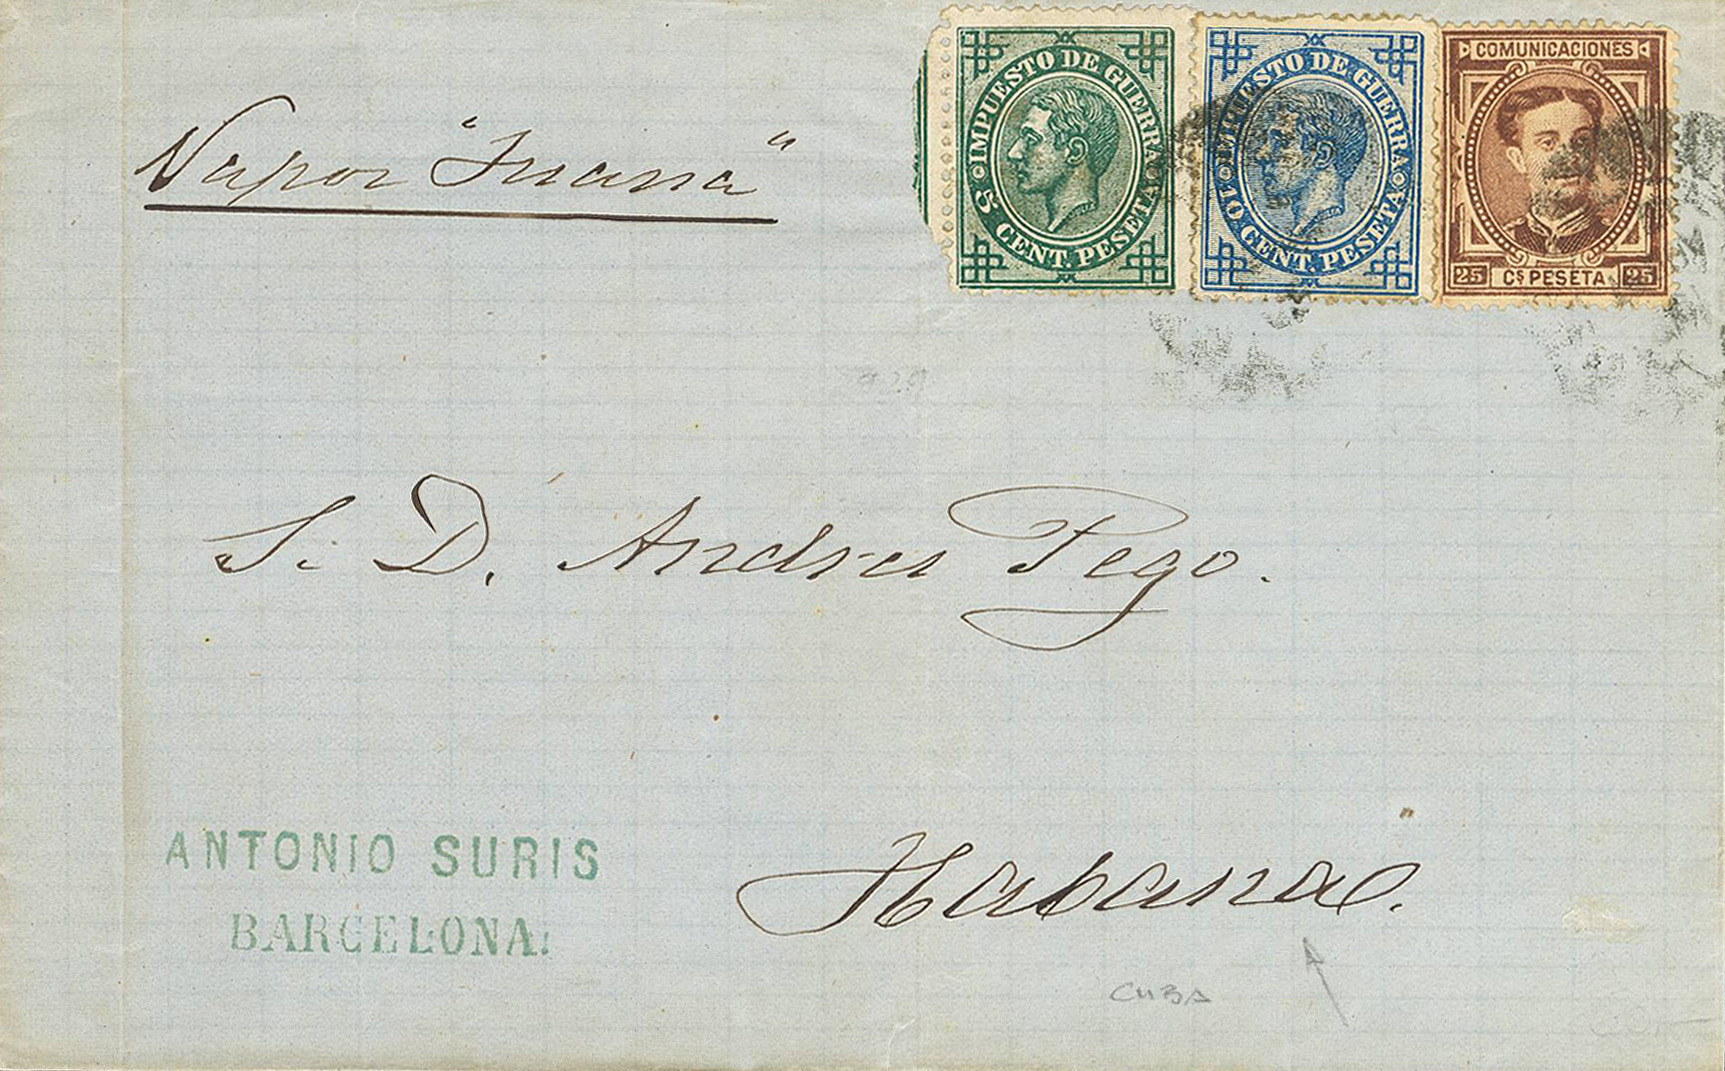 IMPUESTO DE GUERRA
5 CENT. PESETA
IMPUESTO DE GUERRA
10 CENT. PESETA
COMUNICACIONES
25 Cs PESETA 25
Vapor "Juana"
S. D. Andres Pego.
ANTONIO SURIS
BARCELONA.
Habana.
CUBA